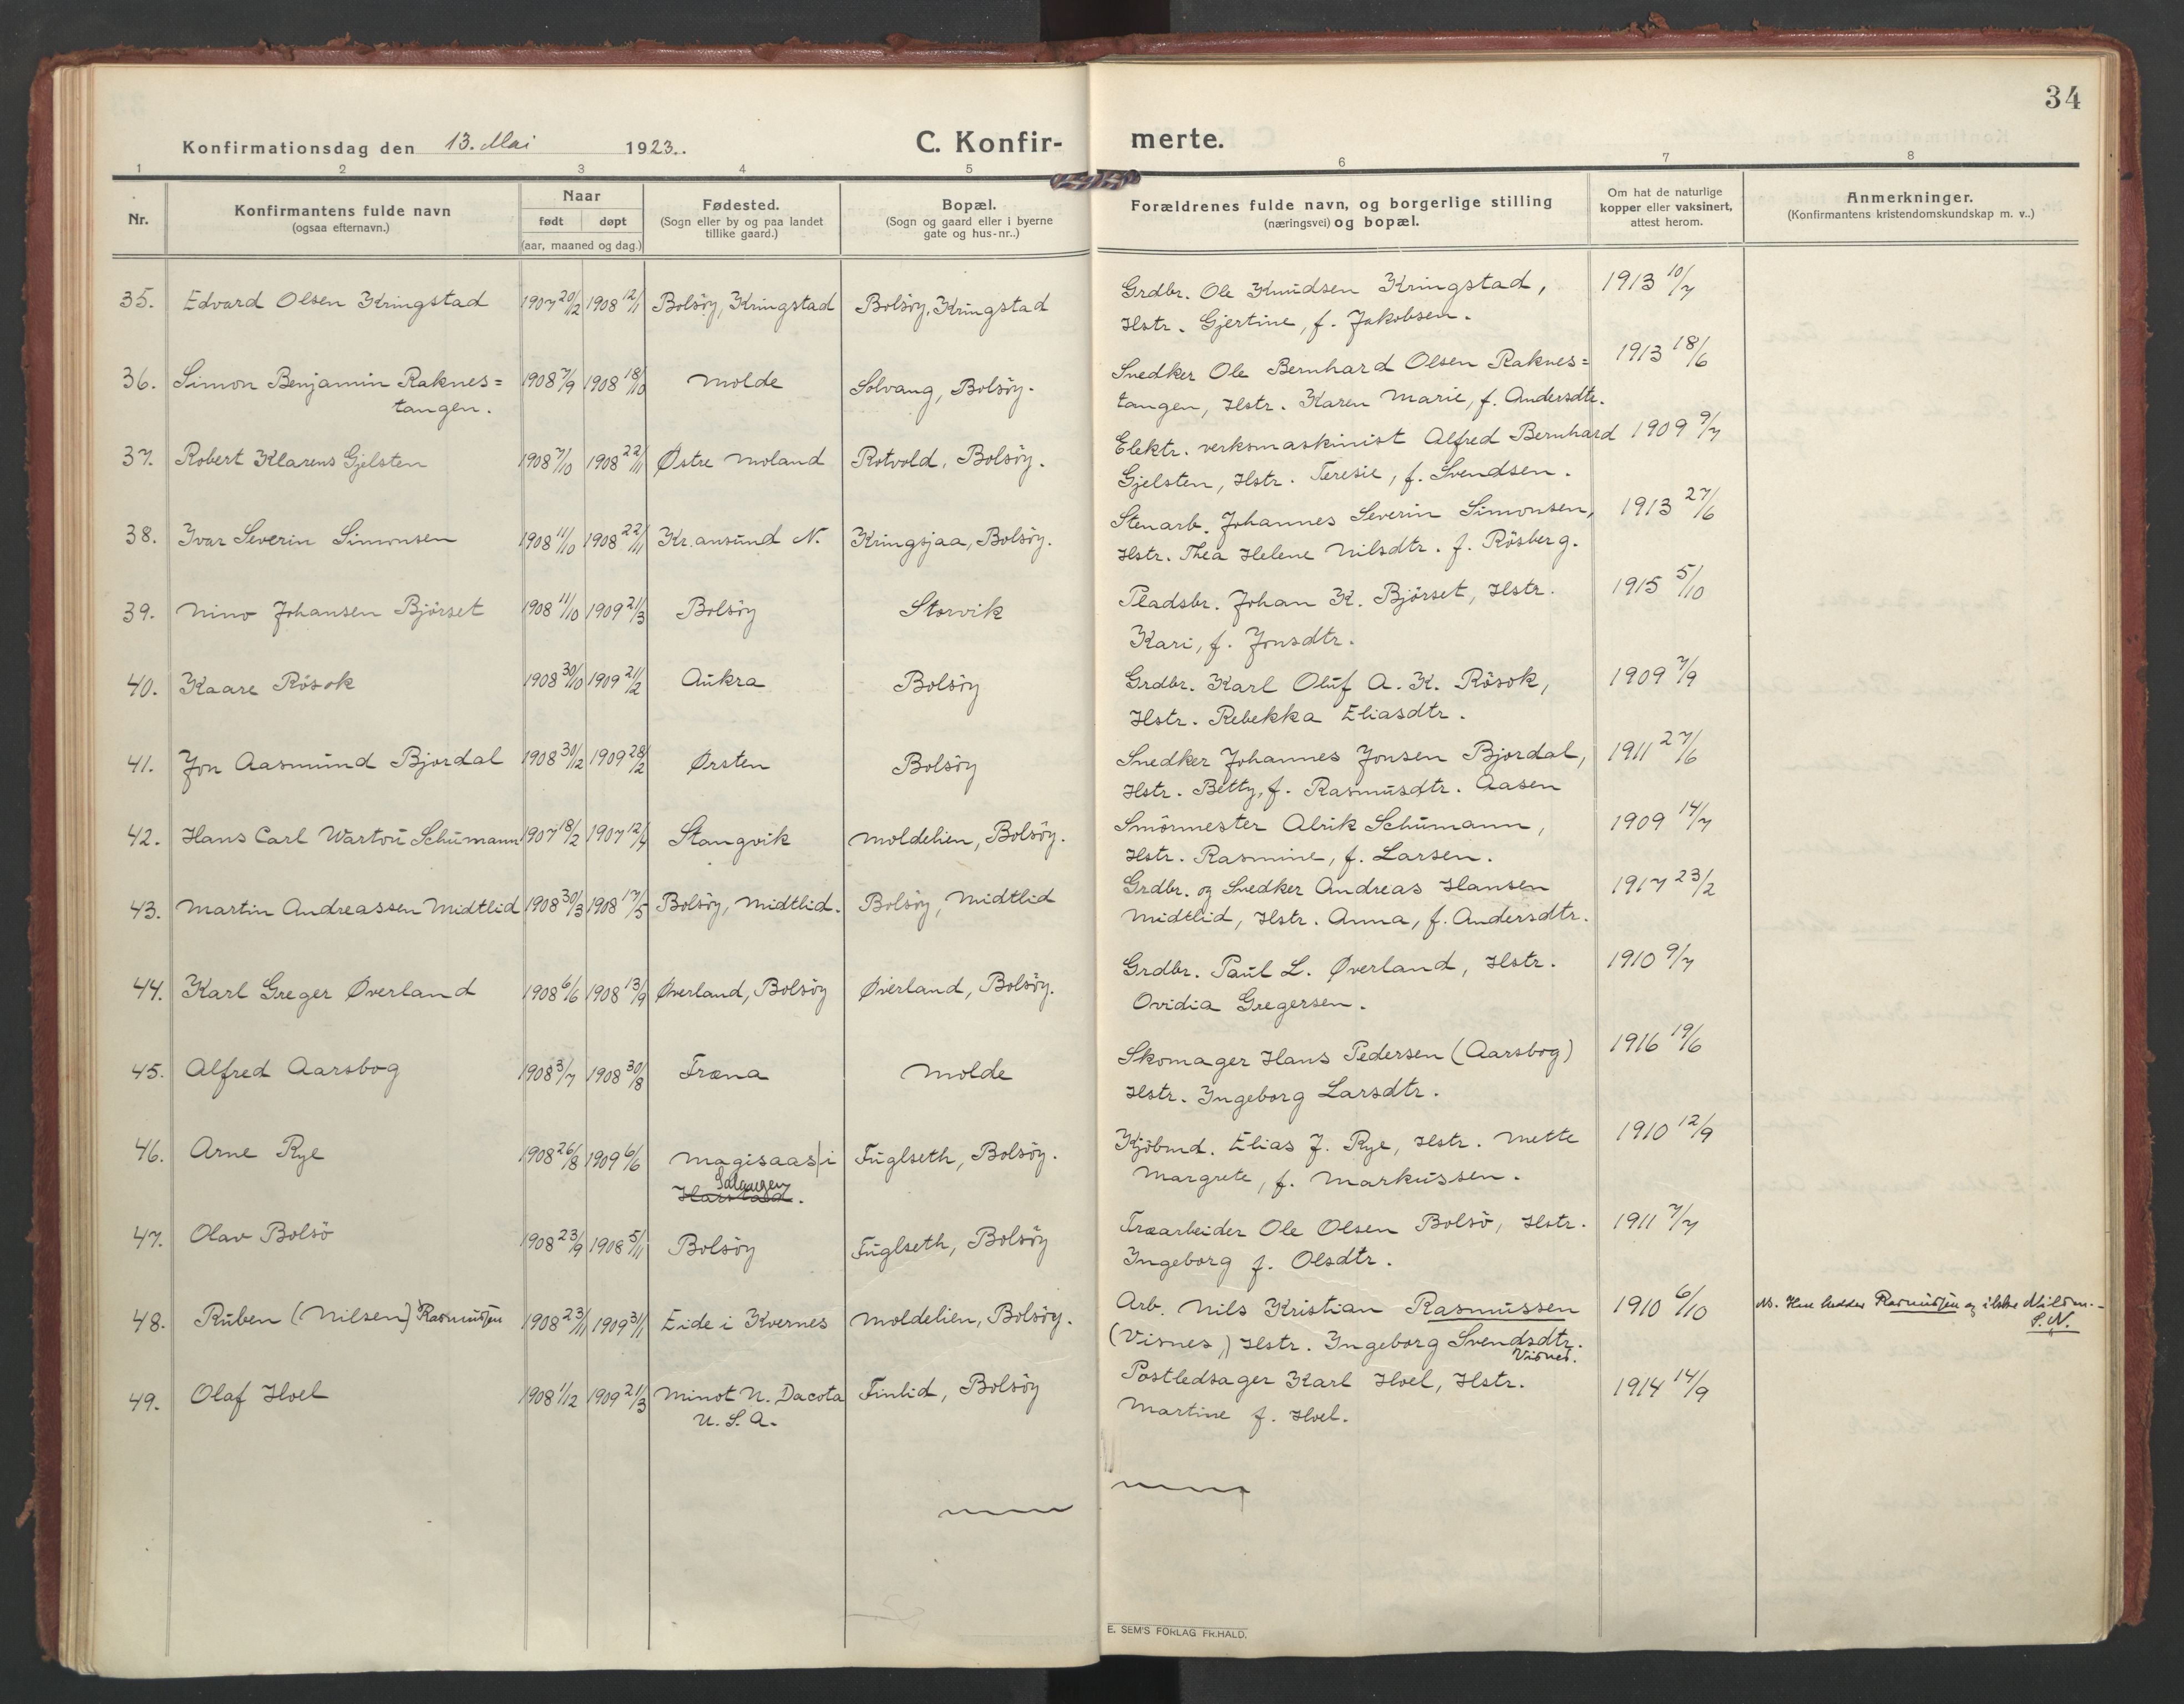 34
Konfirmationsdag den 13. Mai 1923. C. Konfirmerte.
1 2 3 4 5 6 7 8
Nr.
Konfirmantens fulde navn
(ogsaa efternavn.)
Naar
født døpt
(aar, maaned og dag.)
Fødested.
(Sogn eller by og paa landet
tillike gaard.)
Bopæl.
(Sogn og gaard eller i byerne
gate og hus-nr..)
Forældrenes fulde navn, og borgerlige stilling
(næringsvei) og bopæl.
Om hat de naturlige
kopper eller vaksinert,
attest herom.
Anmerkninger.
(Konfirmantens kristendomskundskap m. v..)
35. Edvard Olsen Kringstad 1907 20/12 1908 12/1 Bolsöy, Kringstad Bolsöy, Kringstad Grdbr. Ole Knudsen Kringstad, 1913 10/7
Hstr. Gjertine, f. Jakobsen.
36. Simon Benjamin Raknes= 1908 7/9 1908 18/10 Molde Solvang, Bolsöy. Snedker Ole Bernhard Olsen Raknes= 1913 18/6
tangen. tangen, Hstr. Karen Marie, f. Andersdtr.
37. Robert Klarens Gjelsten 1908 7/10 1908 22/11 Østre Moland Rotvold, Bolsöy. Elektr. verksmaskinist Alfred Bernhard 1909 9/7
Gjelsten, Hstr. Teresie, f. Svendsen.
38. Ivar Severin Simonsen 1908 11/10 1908 22/11 Kr.ansund N. Kringsjaa, Bolsöy. Stenarb. Johannes Severin Simonsen, 1913 27/6
Hstr. Thea Helene Nilsdtr. f. Rösberg.
39. Nino Johansen Björset 1908 11/10 1909 21/3 Bolsöy Storvik Pladsbr. Johan K. Björset, Hstr. 1915 5/10
Kari, f. Jonsdtr.
40. Kaare Rösok 1908 30/10 1909 21/2 Aukra Bolsöy Grdbr. Karl Oluf A. K. Rösok, 1909 7/9
Hstr. Rebekka Eliasdtr.
41. Jon Aasmund Bjordal 1908 30/12 1909 28/2 Ørsten Bolsöy Snedker Johannes Jonsen Bjordal, 1911 27/6
Hstr. Betty, f. Rasmusdtr. Aasen
42. Hans Carl Wartou Schumann 1907 18/2 1907 12/4 Stangvik Moldelien, Bolsöy. Smörmester Alrik Schumann, 1909 14/7
Hstr. Rasmine, f. Larsen.
43. Martin Andreassen Midtlid 1908 30/3 1908 17/5 Bolsöy, Midtlid. Bolsöy, Midtlid Grdbr. og Snedker Andreas Hansen 1917 23/2
Midtlid, Hstr. Anna, f. Andersdtr.
44. Karl Greger Øverland 1908 6/6 1908 13/9 Øverland, Bolsöy Øverland, Bolsöy. Grdbr. Paul L. Øverland, Hstr. 1910 9/7
Ovidia Gregersen.
45. Alfred Aarsbog 1908 3/7 1908 30/8 Fræna Molde Skomager Hans Pedersen (Aarsbog) 1916 19/6
Hstr. Ingeborg Larsdtr.
46. Arne Rye 1908 26/8 1909 6/6 Magisaas i Fuglseth, Bolsöy. Kjöbmd. Elias J. Rye, Hstr. Mette 1910 12/9
Salangen
Harstad. Margrete, f. Markussen.
47. Olav Bolsö 1908 23/9 1908 5/11 Bolsöy Fuglseth, Bolsöy Træarbeider Ole Olsen Bolsö, Hstr. 1911 7/7
Ingeborg f. Olsdtr.
48. Ruben (Nilsen) Rasmussen 1908 23/11 1909 31/1 Eide i Kvernes Moldelien, Bolsöy. Arb. Nils Kristian Rasmussen 1910 6/10 Han hedder Rasmussen og ikke Nilsen.
S.N.
(Visnes) Hstr. Ingeborg Svendsdtr.
Visnes.
49. Olaf Hoel 1908 1/12 1909 21/3 Minot N. Dacota Finlid, Bolsöy Postledsager Karl Hoel, Hstr. 1914 14/9
U. S. A. Martine f. Hoel.
E. SEM'S FORLAG FR.HALD.